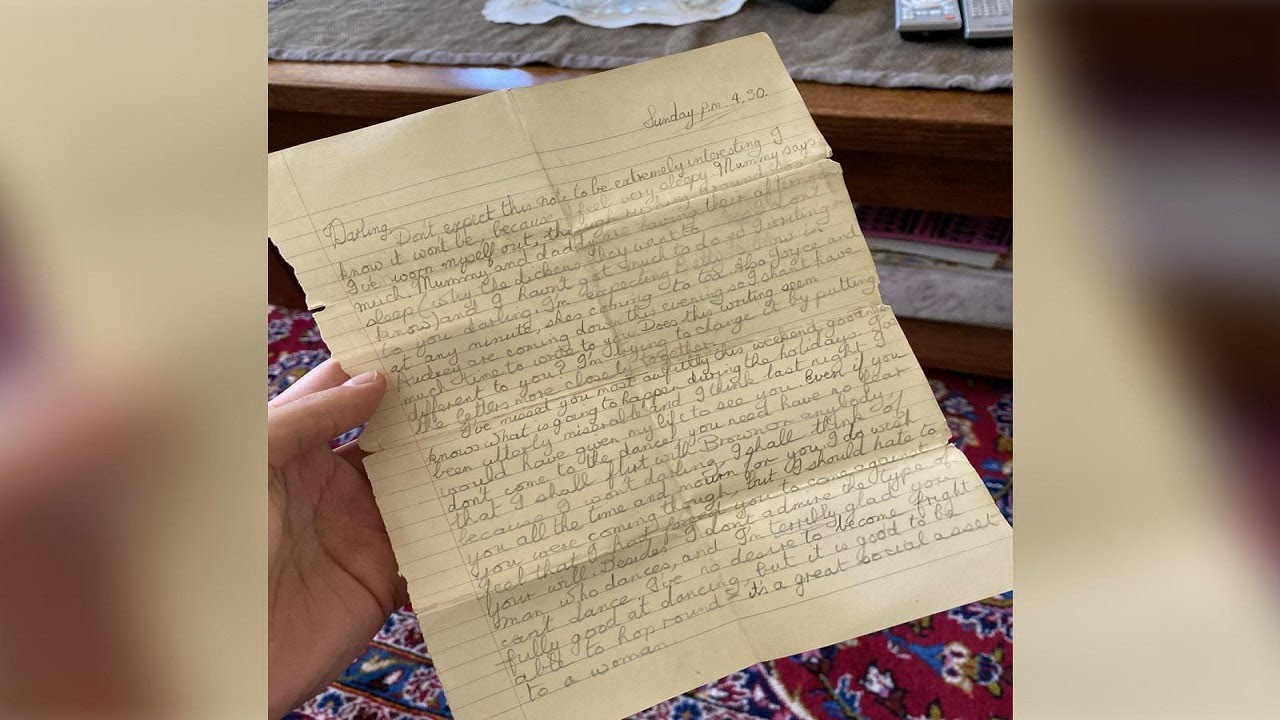 Sunday p.m. 4.30.
Darling, Don't expect this note to be extremely interesting I
know it won't be, because I feel very sleepy Mummy says
I've worn myself out, through rushing around so
much. Mummy and daddy are having their afternoon
sleep (why the dickens they want to I really don't
know) and I haven't got much to do so I'm writing
to you darling. I'm expecting Betty to blow in
at any minute, she's coming to tea. Also Joyce and
Audrey are coming down this evening so I shan't have
much time to write to you. Does this writing seem
different to you? I'm trying to change it by putting
the letters more closely together.
I've missed you most awfully this weekend, goodness
knows what is going to happen during the holidays. I've
been utterly miserable and I think last night I
would have given my life to see you. Even if you
don't come to the dance, you need have no fear
that I shall flirt with Brown or anybody,
because I won't darling, I shall think of
you all the time and mourn for you. I do wish
you were coming though, but I should hate to
feel that I had forced you to come against
your will. Besides I don't admire the type of
man who dances, and I'm terribly glad you
can't dance. I've no desire to become fright
fully good at dancing, but it is good to be
able to hop round & it's a great social asset
to a woman.